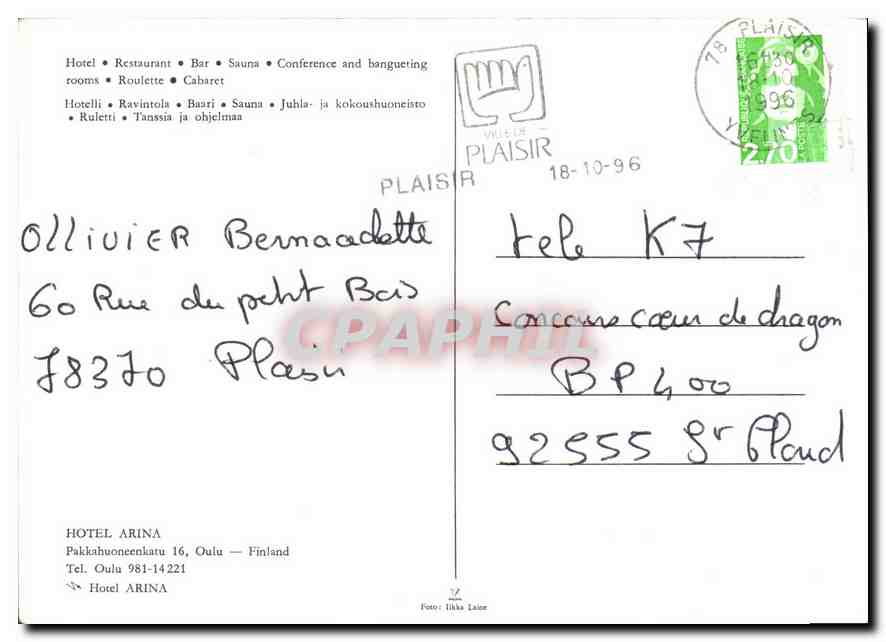 Hotel • Restaurant • Bar • Sauna • Conference and bangueting
rooms • Roulette • Cabaret
Hotelli • Ravintola • Baari • Sauna • Juhla- ja kokoushuoneisto
• Ruletti • Tanssia ja ohjelmaa
VILLE DE
PLAISIR
PLAISIR 18-10-96
78 PLAISIR
16H30
18-10
1996
YVELINES
2,70
LA POSTE
OllIVIER Bernadette
60 Rue du petit Bois
78370 Plaisir
tele K7
Concours cœur de dragon
BP 400
92555 St Cloud
CPAPHIL
HOTEL ARINA
Pakkahuoneenkatu 16, Oulu — Finland
Tel. Oulu 981-14 221
Hotel ARINA
Foto: Ilkka Laine